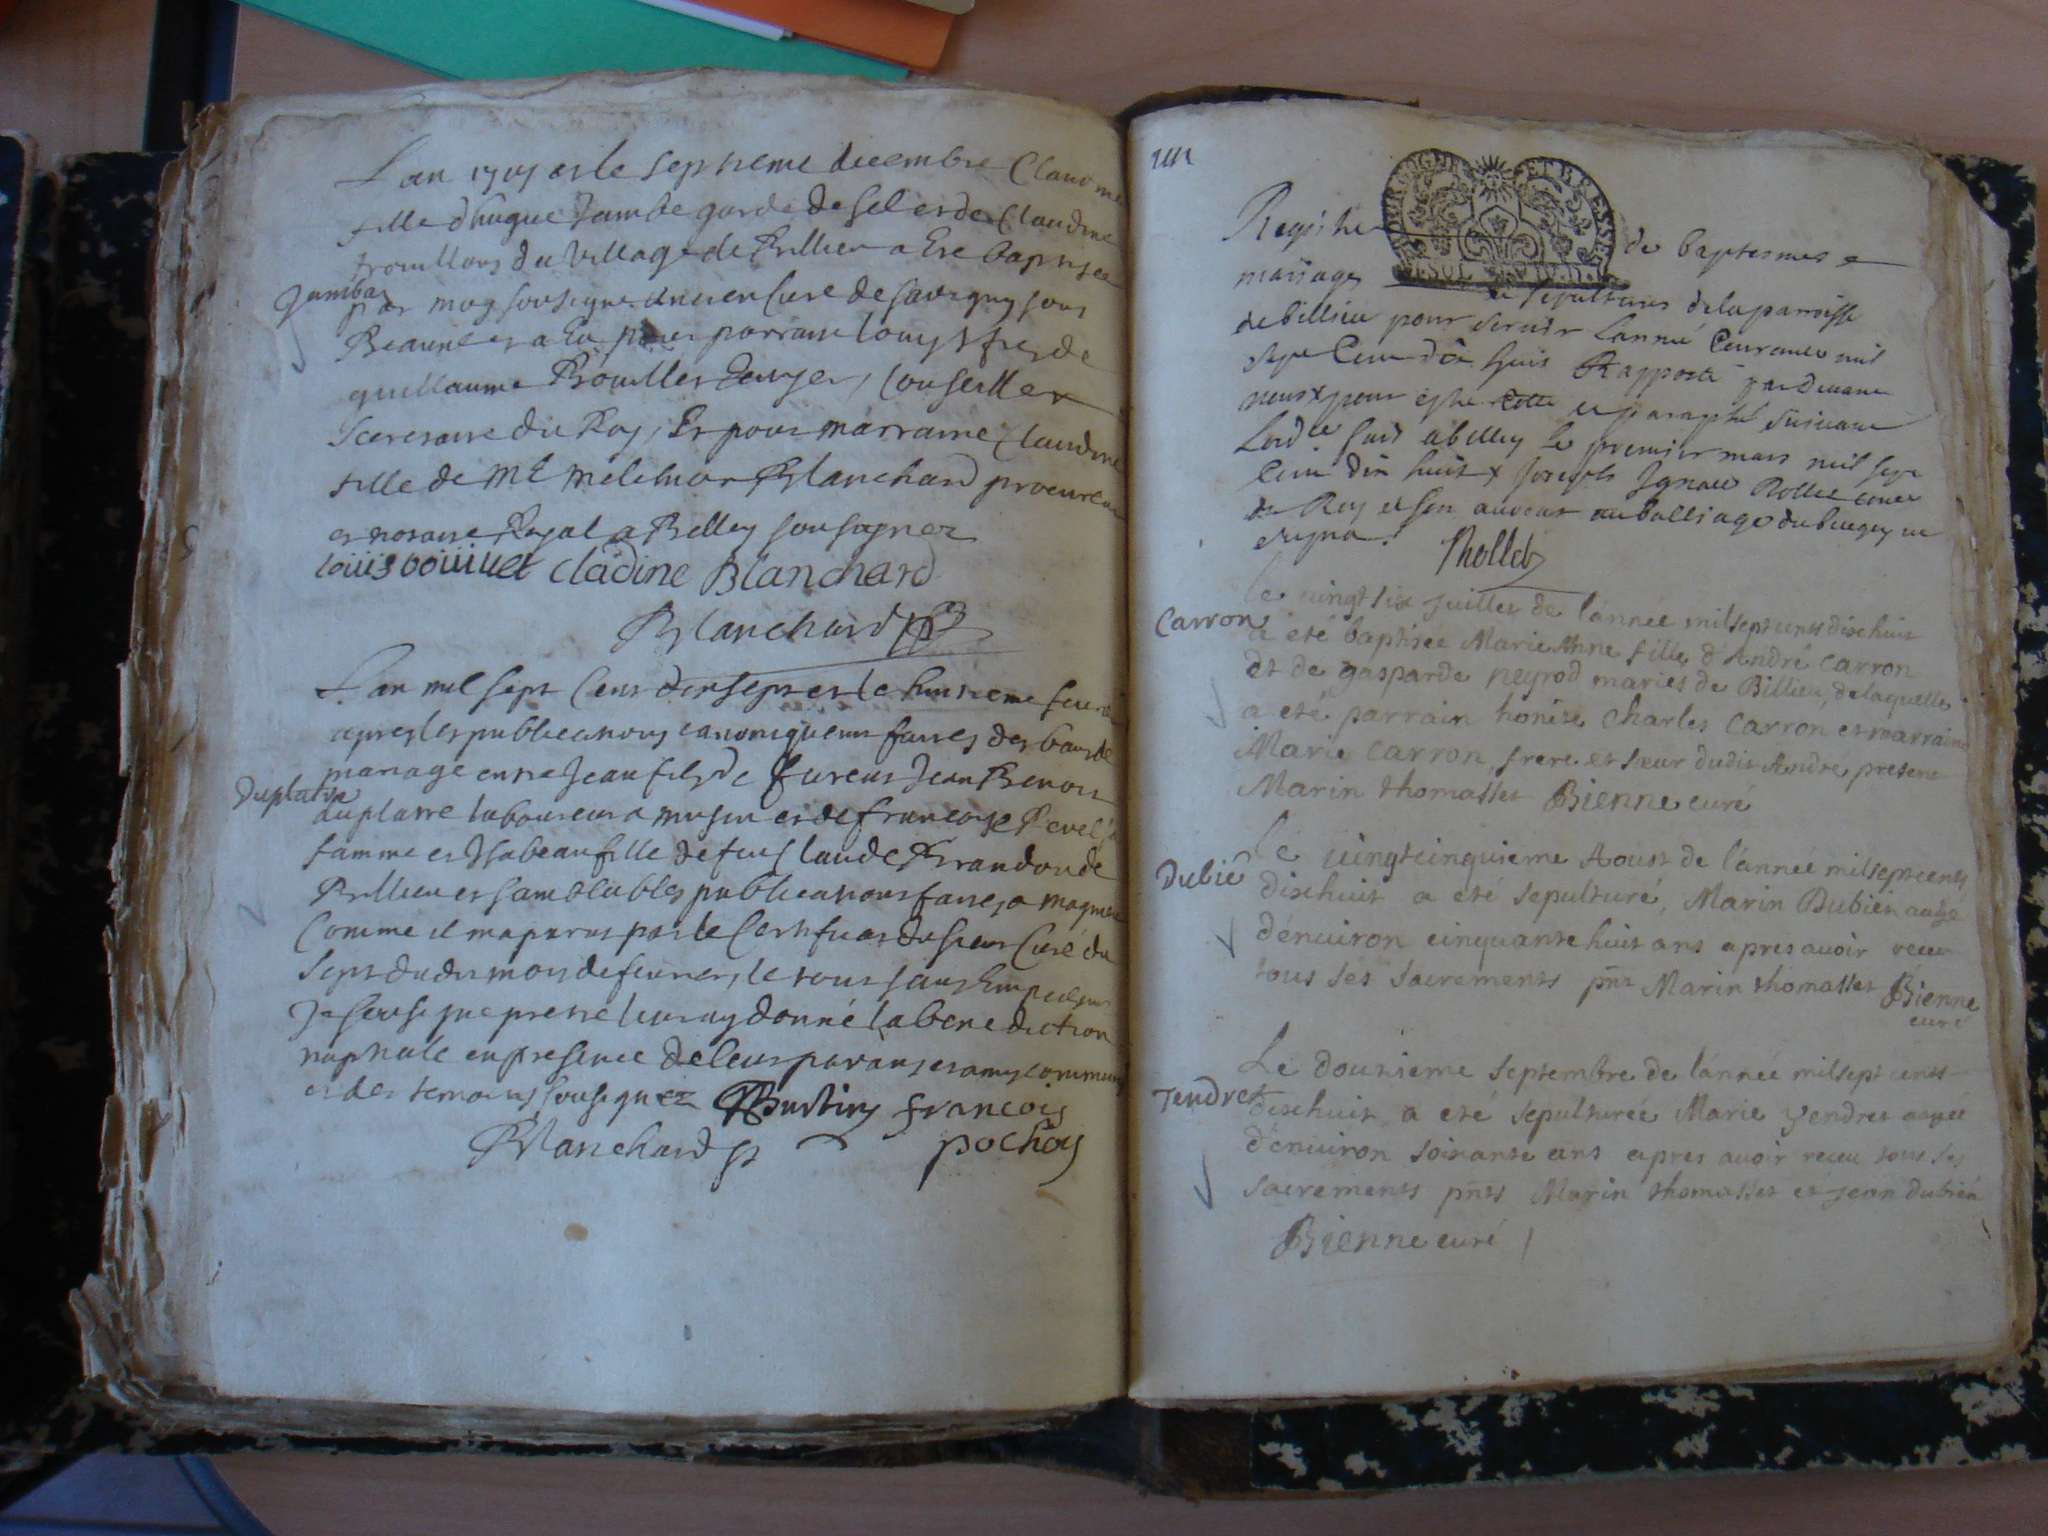 Lan 17 et le septieme decembre Claudine
fille dhugue Jambe garde de sel et de Claudine
trouillous du village de Billieu a Ete baptisee
Jambaz
par moy soussigne ancien Cure de savigny sous
Beaune et a Eu pour parrain louys fils de
guillaume Bouillet Conseiller
Secretaire du Roy, Et pour marraine Claudine
fille de Me melchior Blanchard procureur
et notaire Royal a Belley soussignez
loüis boüillet cladine Blanchard
Blanchard
Lan mil sept Cent dix sept et le huitieme feurier
apres les publications canoniquement faites des bans de
mariage entre Jean fils de feu Jean Benoit
Duplatre
duplatre laboureur a musin et de francoise Revel sa
famme et Isabeau fille de feu Claude Brandon de
Billieu et samblables publications faites a magnieu
Comme il ma parus par le Certificat du sieur Curé du
sept dudit mois de feurier, le tout sans Empechement
Je soussigne pretre leur ay donné la benediction
nuptiale en presence de leurs parans et amys communs
et des temoins soussignez francois
Blanchard pochoy
BOURGOGNE ET BRESSE
SOL
Registre de baptesmes
mariages et sepultures de la parroisse
de billieu pour servir Lanneé Courante mil
sept Cent dix huit Rapporté par devant
nous pour estre Cotté et paraphé suivant
Lordce fait a belley le premier mars mil sept
Cent dix huit Joseph Ignace Rollet Coner
du Roy et son auocat au balliage du bugey
signé. Rollet
Carron
le vingt six juillet de l'année mil sept cents dix huit
a eté baptisée Marie Anne fille d'André Carron
et de gasparde peyrod mariés de Billieu, de laquelle
a eté parrain Charles Carron et marraine
Marie Carron frere et sœur dudit Andre, present
Marin thomasset Bienne curé
Dubié
le vingt cinquieme Aoust de l'année mil sept cents
dix huit a eté sepulturé, Marin Dubien
d'environ cinquante huit ans apres avoir receu
tous ses sacrements pñt Marin thomasset Bienne
curé
Le douzieme septembre de l'année mil sept cents
Tendret
dix huit a eté sepulturée Marie tendret
d'environ soixante ans apres avoir receu tous ses
sacrements pñts Marin thomasset et jean dubien
Bienne curé